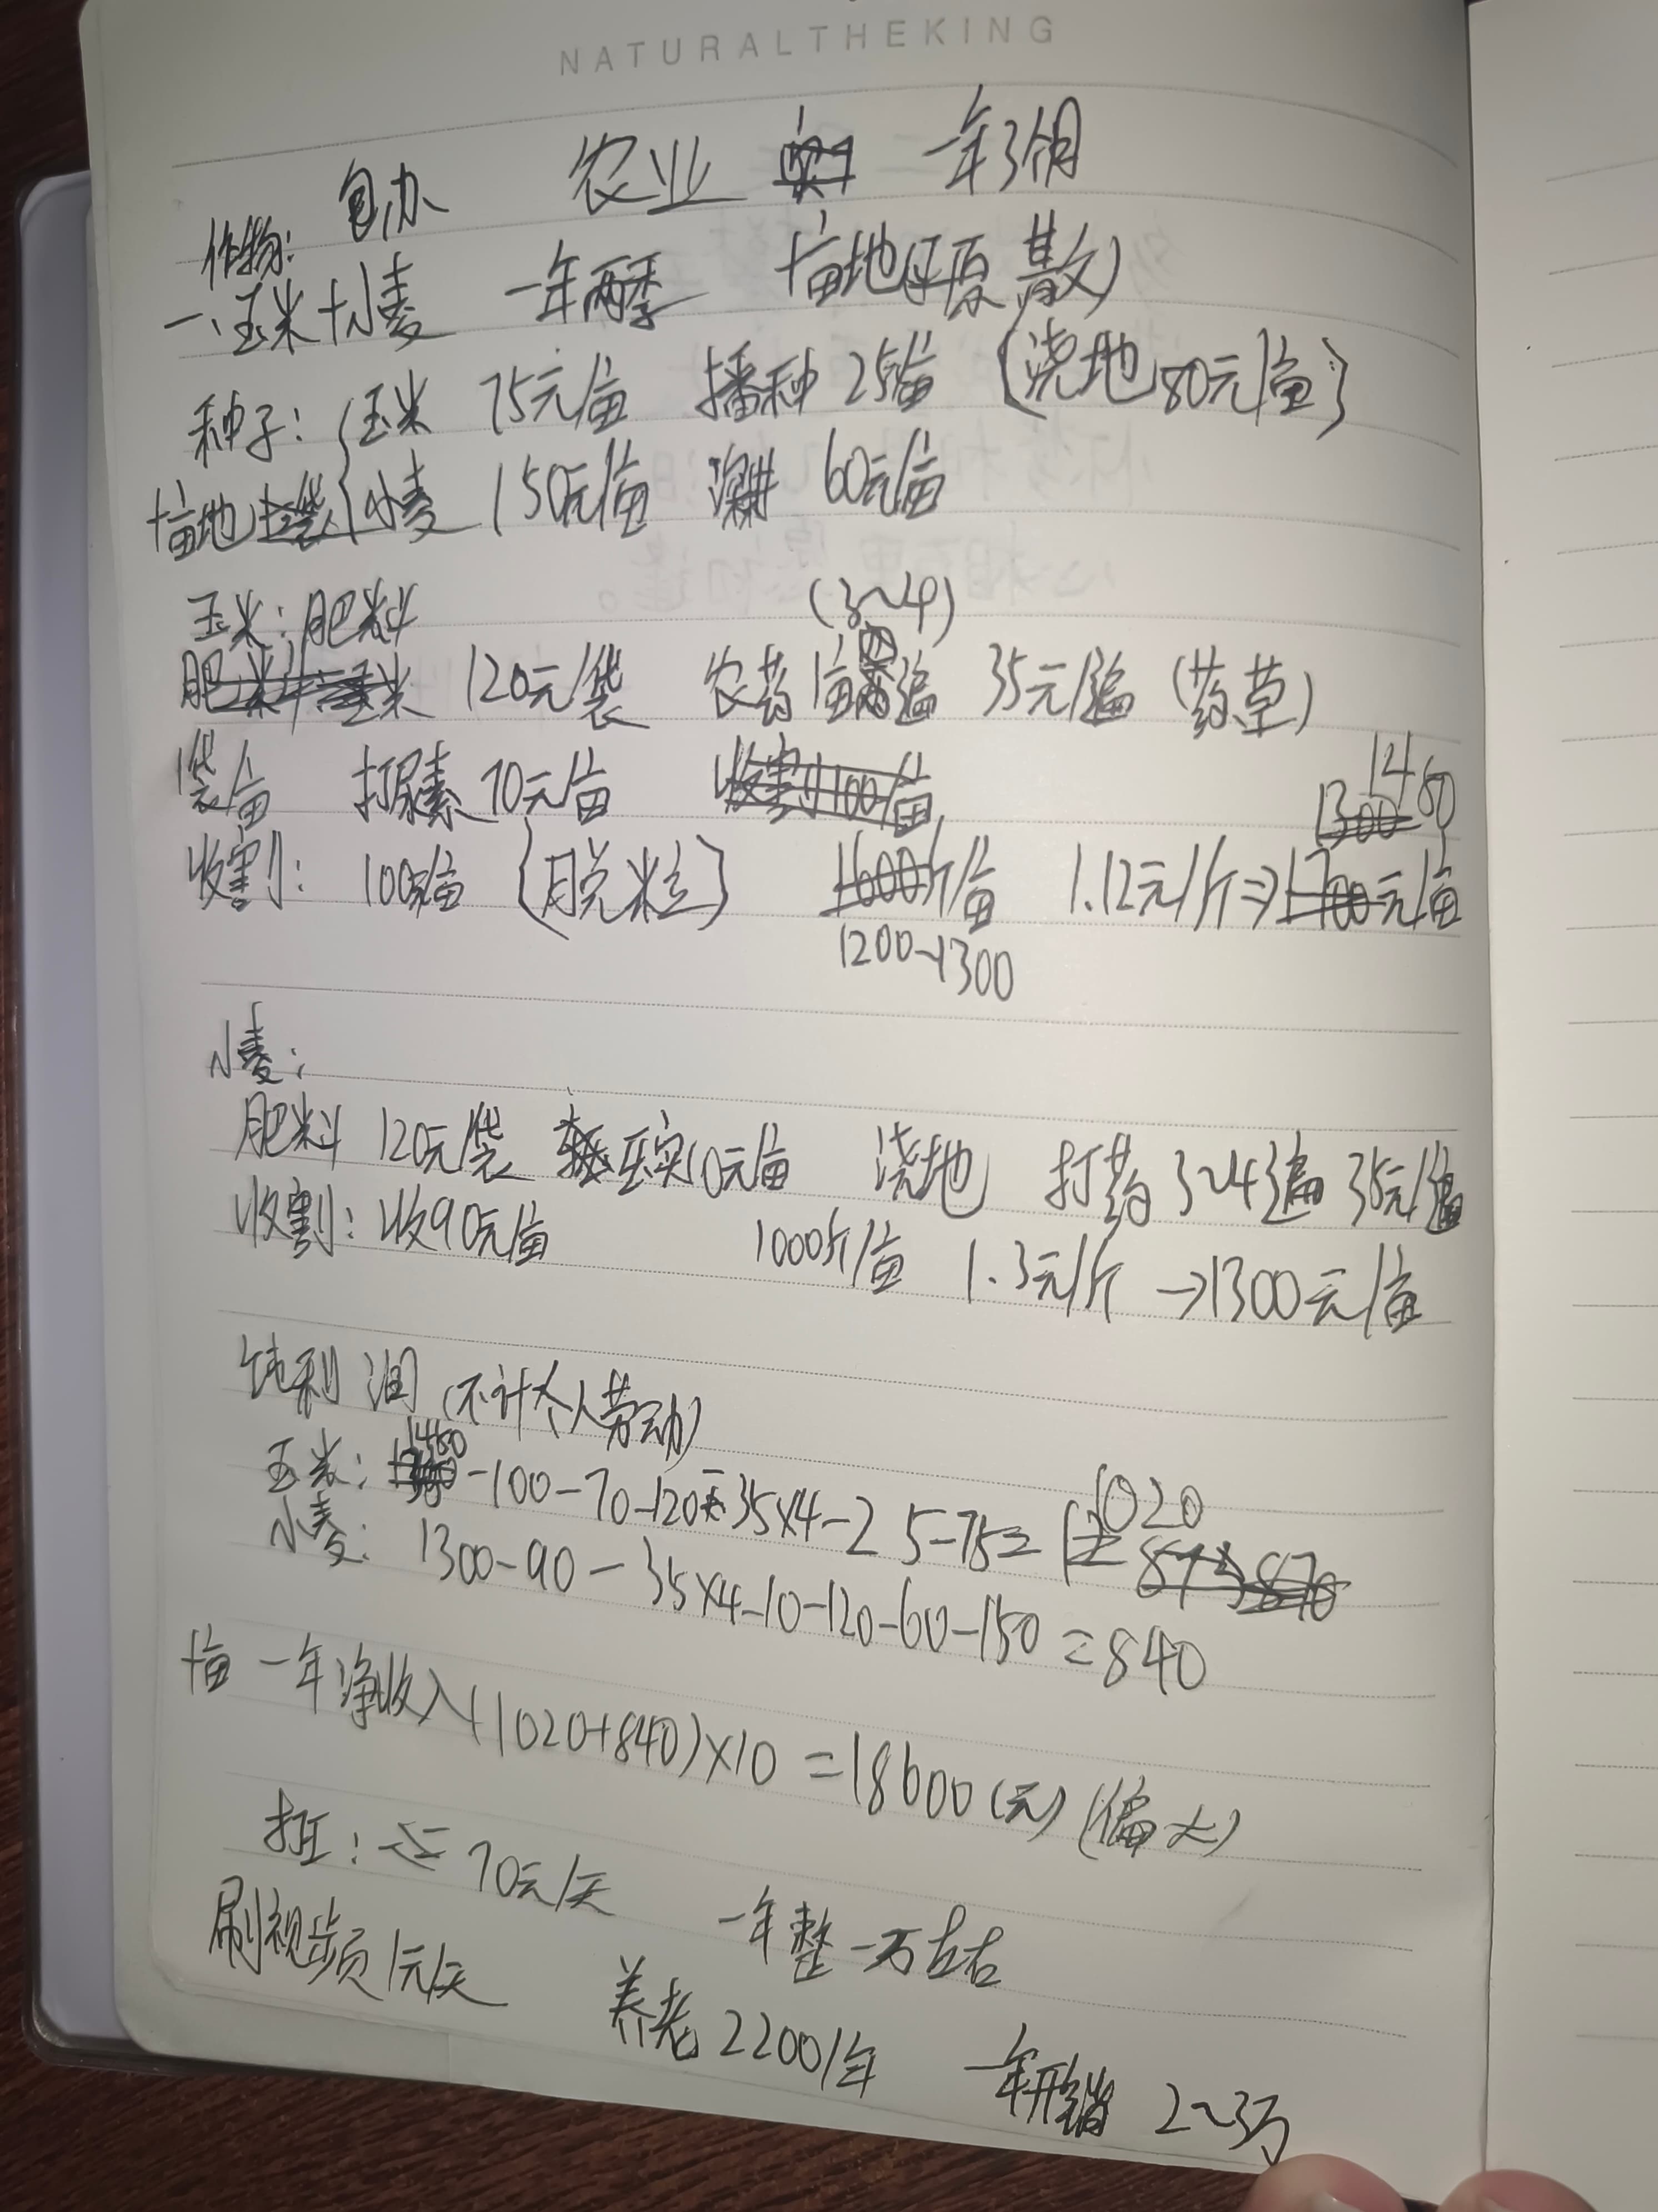 NATURALTHEKING
自办 农业 一年3个月
作物:
一、玉米+小麦 一年两季 十亩地(平原 散)
种子: 玉米 75元/亩 播种25/亩 {浇地80元/亩}
十亩地 小麦 150元/亩 60元/亩
玉米:肥料 (3~4)
120元/袋 农药1亩四遍 35元/遍 (药草)
1袋/亩 打尿素70元/亩 1460
收割: 100元/亩 {脱粒} 1200~1300 1.12元/斤⇒ 元/亩
小麦:
肥料 120元/袋 压实10元/亩 浇地 打药3~4遍 35元/遍
收割:收90元/亩 1000斤/亩 1.3元/斤 →1300元/亩
纯利润(不计个人劳动)
玉米: 1460-100-70-120-35×4-25-75= 1020
小麦: 1300-90-35×4-10-120-60-150=840
十亩 一年净收入(1020+840)×10=18600(元)(偏大)
打工: 70元/天 一年整一万左右
刷视频1元/天 养老2200/年 一年开销 2~3万